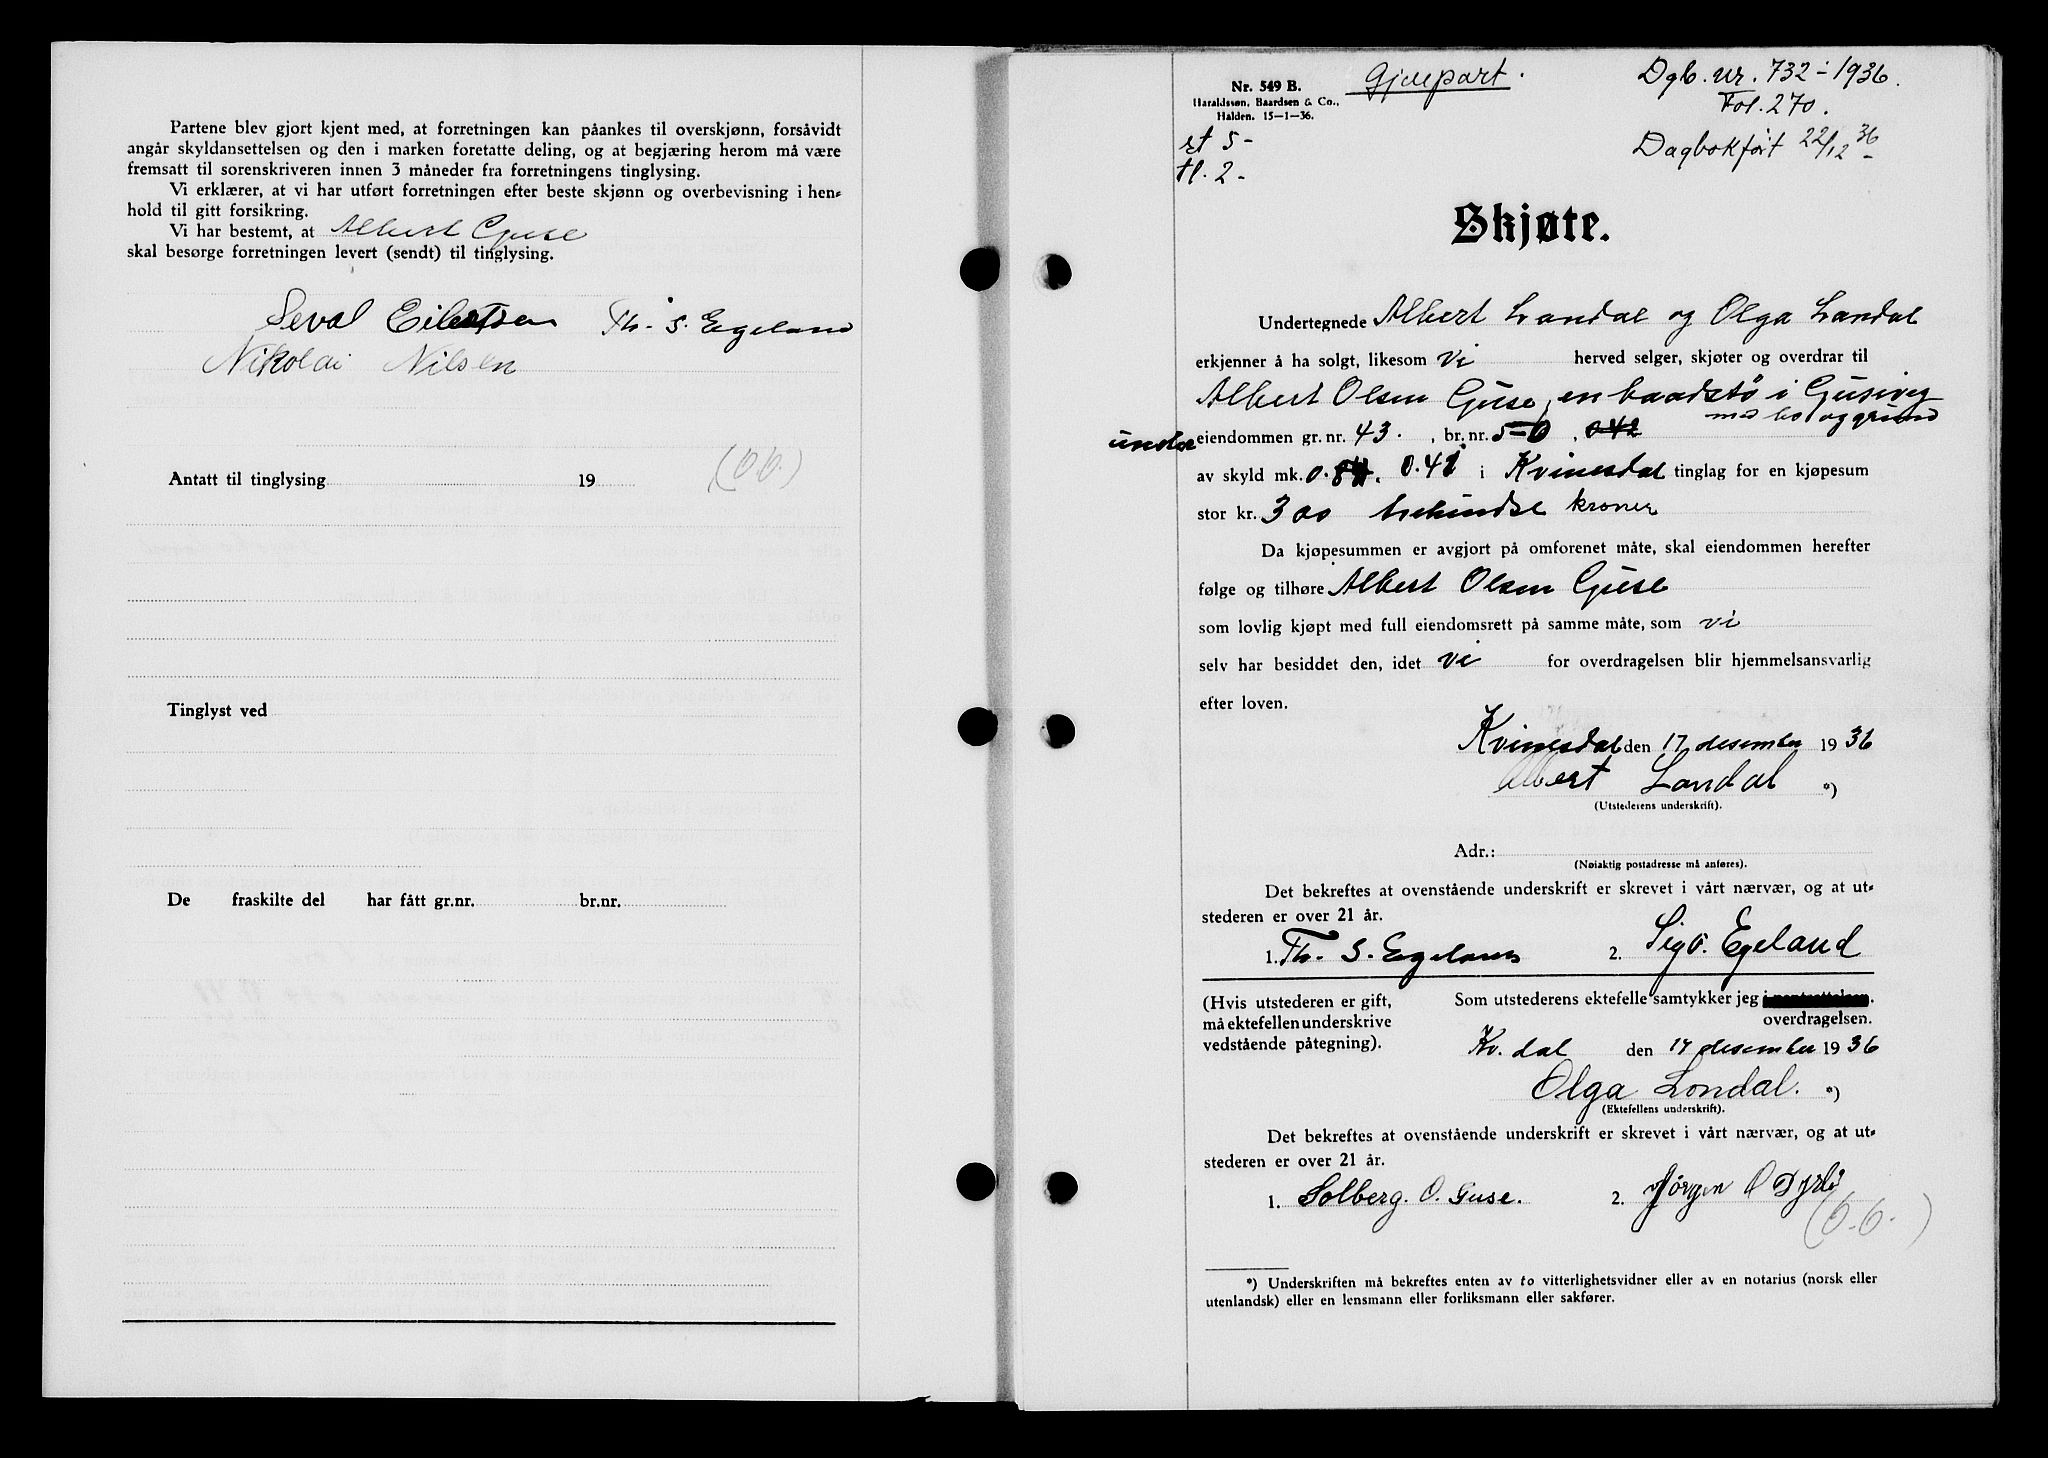 Partene blev gjort kjent med, at forretningen kan påankes til overskjønn, forsåvidt
angår skyldansettelsen og den i marken foretatte deling, og at begjæring herom må være
fremsatt til sorenskriveren innen 3 måneder fra forretningens tinglysing.
Vi erklærer, at vi har utført forretningen efter beste skjønn og overbevisning i hen-
hold til gitt forsikring.
Vi har bestemt, at Albert Guse
skal besørge forretningen levert (sendt) til tinglysing.
Seval Eilertsen Th. S. Egeland
Nikolai Nilsen
Antatt til tinglysing 19
Tinglyst ved
De fraskilte del har fått gr.nr. br.nr.
Nr. 549 B.
Haraldssøn, Baardsen & Co.,
Halden. 15-1-36.
Gjenpart.
Dgb. nr. 732 - 1936.
Fol. 270.
Dagbokført 22/12 36
st 5 -
tl. 2 -
Skjøte.
Undertegnede Albert Londal og Olga Londal
erkjenner å ha solgt, likesom vi herved selger, skjøter og overdrar til
Albert Olsen Guse, en baadstö i Gusevig
under eiendommen gr. nr. 43. , br. nr. 5 og grund
av skyld mk. 0.41 i Kvinesdal tinglag for en kjøpesum
stor kr. 300 trehundse kroner
Da kjøpesummen er avgjort på omforenet måte, skal eiendommen herefter
følge og tilhøre Albert Olsen Guse
som lovlig kjøpt med full eiendomsrett på samme måte, som vi
selv har besiddet den, idet vi for overdragelsen blir hjemmelsansvarlig
efter loven.
Kvinesdal den 17 desember 1936
Albert Londal *)
(Utstederens underskrift).
Adr.:
(Nøiaktig postadresse må anføres).
Det bekreftes at ovenstående underskrift er skrevet i vårt nærvær, og at ut-
stederen er over 21 år.
1. Th. S. Egeland 2. Sigv. Egeland
(Hvis utstederen er gift,
må ektefellen underskrive
vedstående påtegning).
Som utstederens ektefelle samtykker jeg i
overdragelsen.
Kv. dal den 17 desember 1936
Olga Londal. *)
(Ektefellens underskrift).
Det bekreftes at ovenstående underskrift er skrevet i vårt nærvær, og at ut-
stederen er over 21 år.
1. Solberg. O. Guse. 2. Jörgen O
*) Underskriften må bekreftes enten av to vitterlighetsvidner eller av en notarius (norsk eller
utenlandsk) eller en lensmann eller forliksmann eller sakfører.